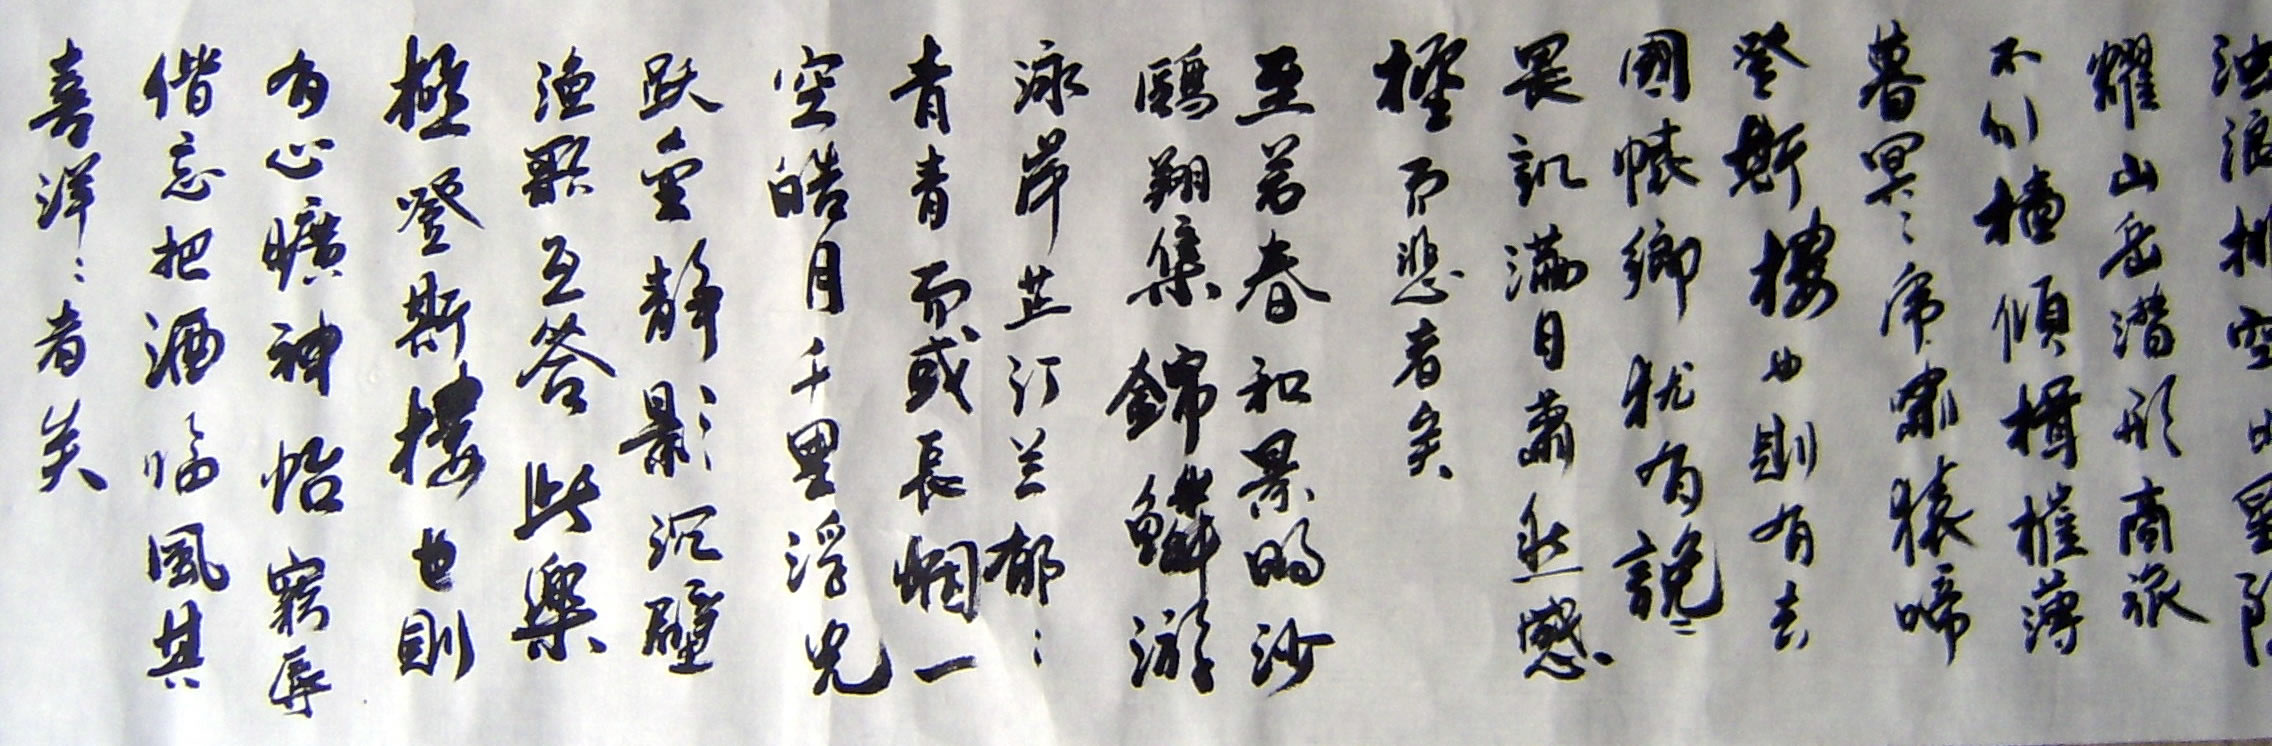 浊浪排空日星
耀山岳潜形商旅
不行樯傾楫摧薄
暮冥〻虎嘯猿啼
登斯樓也則有去
國懷鄉忧有讒
畏讥滿目蕭然感
極而悲者矣
至若春和景明沙
鷗翔集錦鱗游
泳岸芷汀兰郁〻
青青而或長烟一
空皓月千里浮光
跃金静影沉璧
渔歌互答此樂
極登斯樓也則
有心曠神怡寵辱
偕忘把酒临風其
喜洋〻者矣